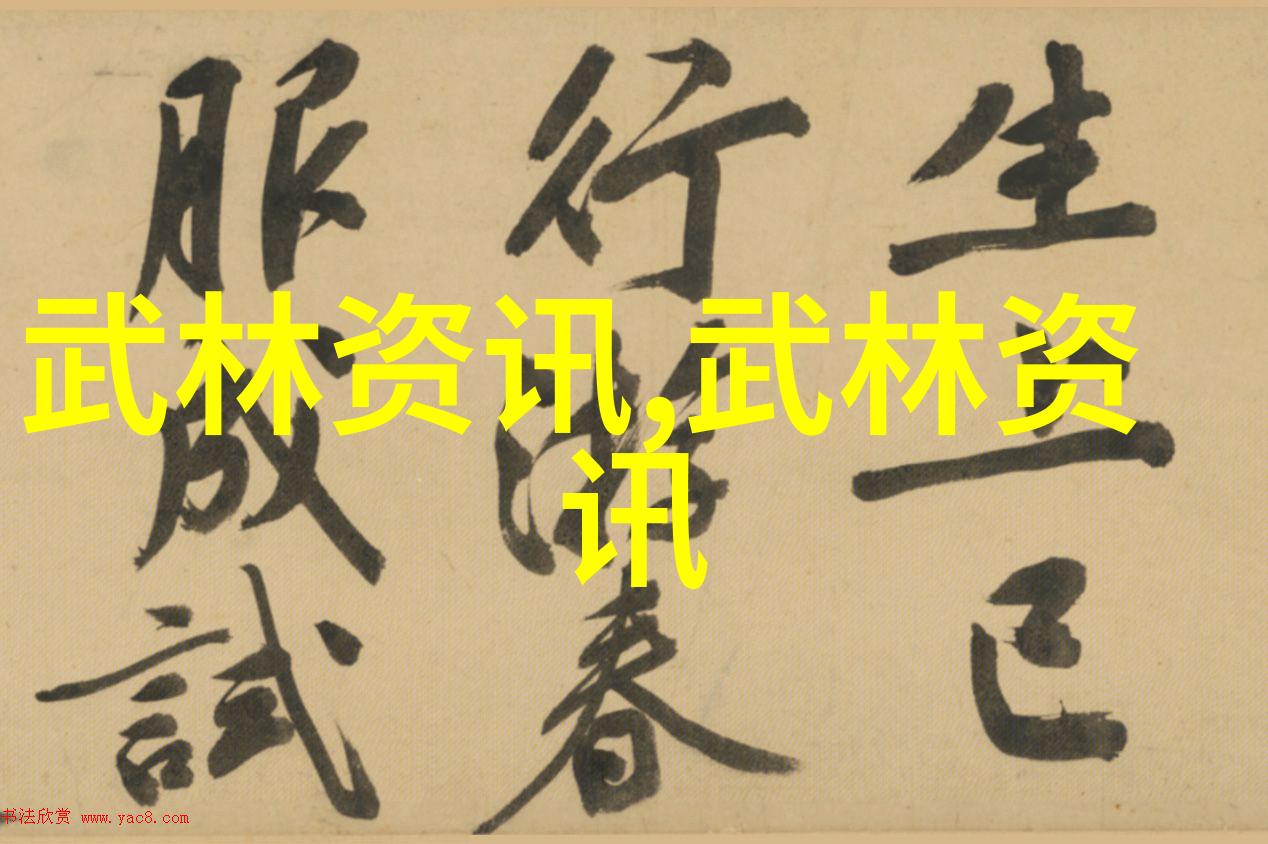 生上已
行春
服成試
武林资讯,武林资
讯
书法欣赏 www.yac8.com